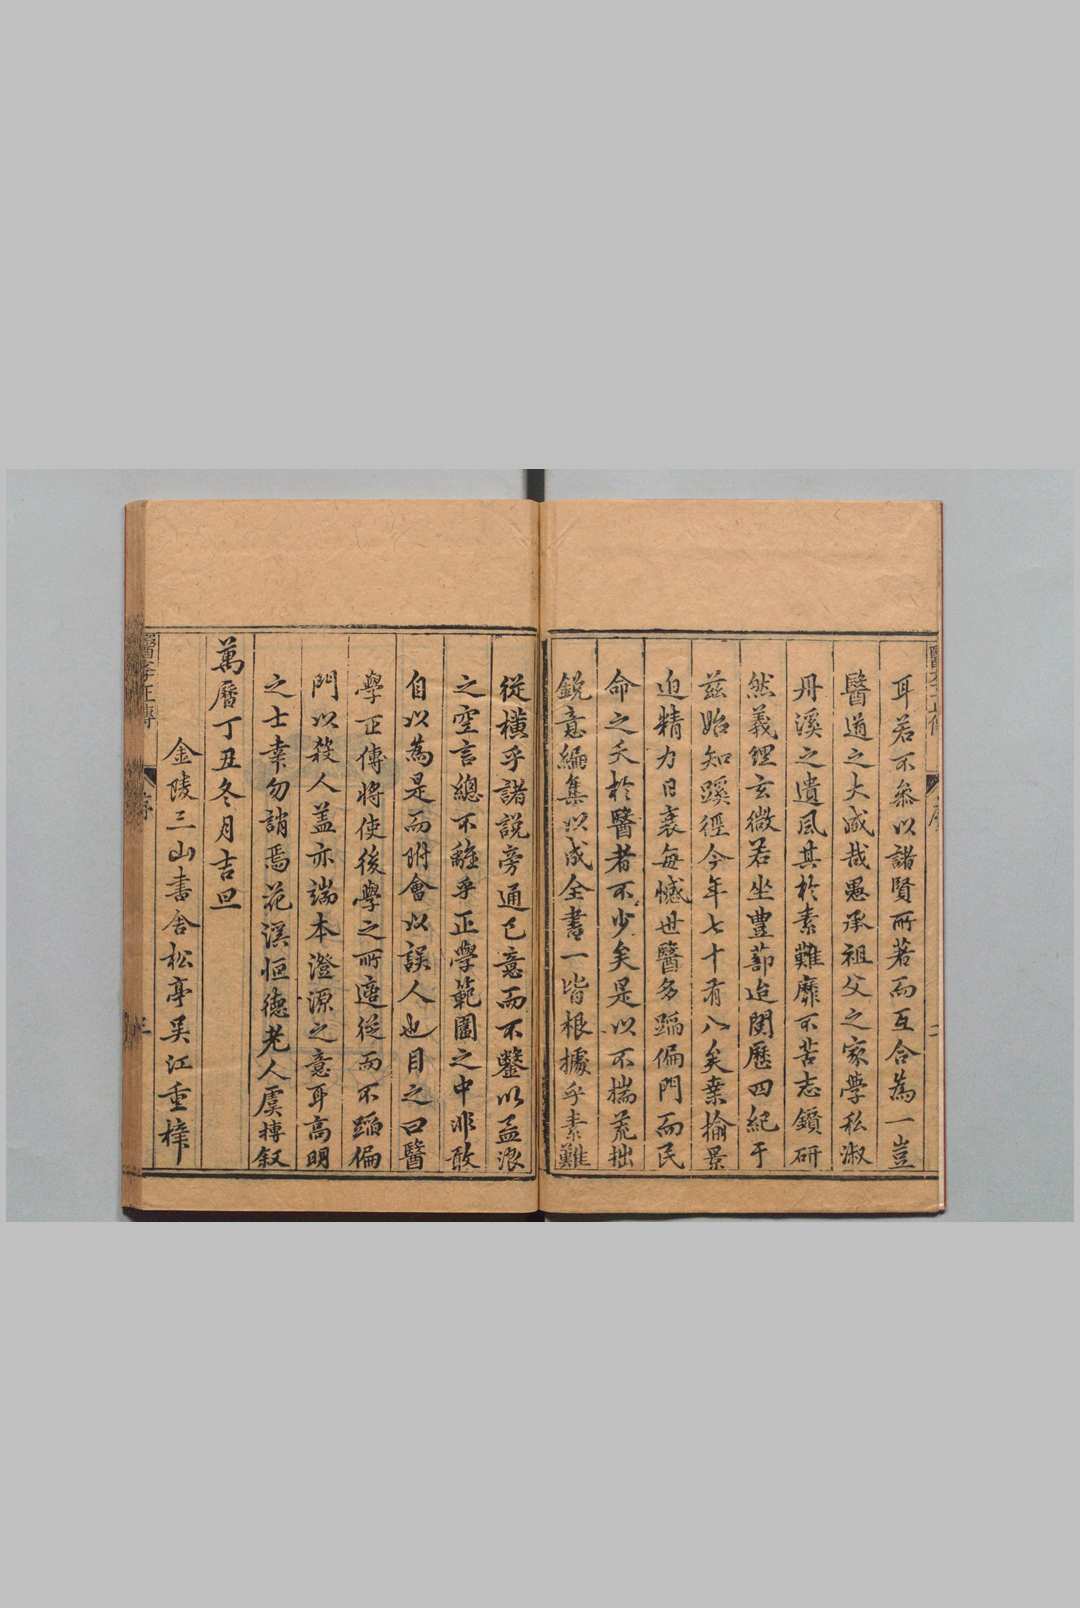 耳若不叅以諸賢所著而互合為一豈
醫道之大成哉愚承祖父之家學私淑
丹溪之遺風其於素難靡不苦志鑽研
然義理玄微若坐豐蔀迨閱歷四紀于
茲始知蹊徑今年七十有八矣桑榆景
迫精力日衰每憾世醫多蹈偏門而民
命之夭於醫者不少矣是以不揣荒拙
銳意編集以成全書一皆根據乎素難
從橫乎諸說旁通已意而不鑿以孟浪
之空言總不離乎正學範圍之中非敢
自以為是而附會以誤人也目之曰醫
學正傳將使後學之所適從而不蹈偏
門以殺人盖亦端本澄源之意耳高明
之士幸勿誚焉花溪恒德老人虞摶叙
萬曆丁丑冬月吉旦
金陵三山書舍松亭吴江重梓
醫學正傳 序 三